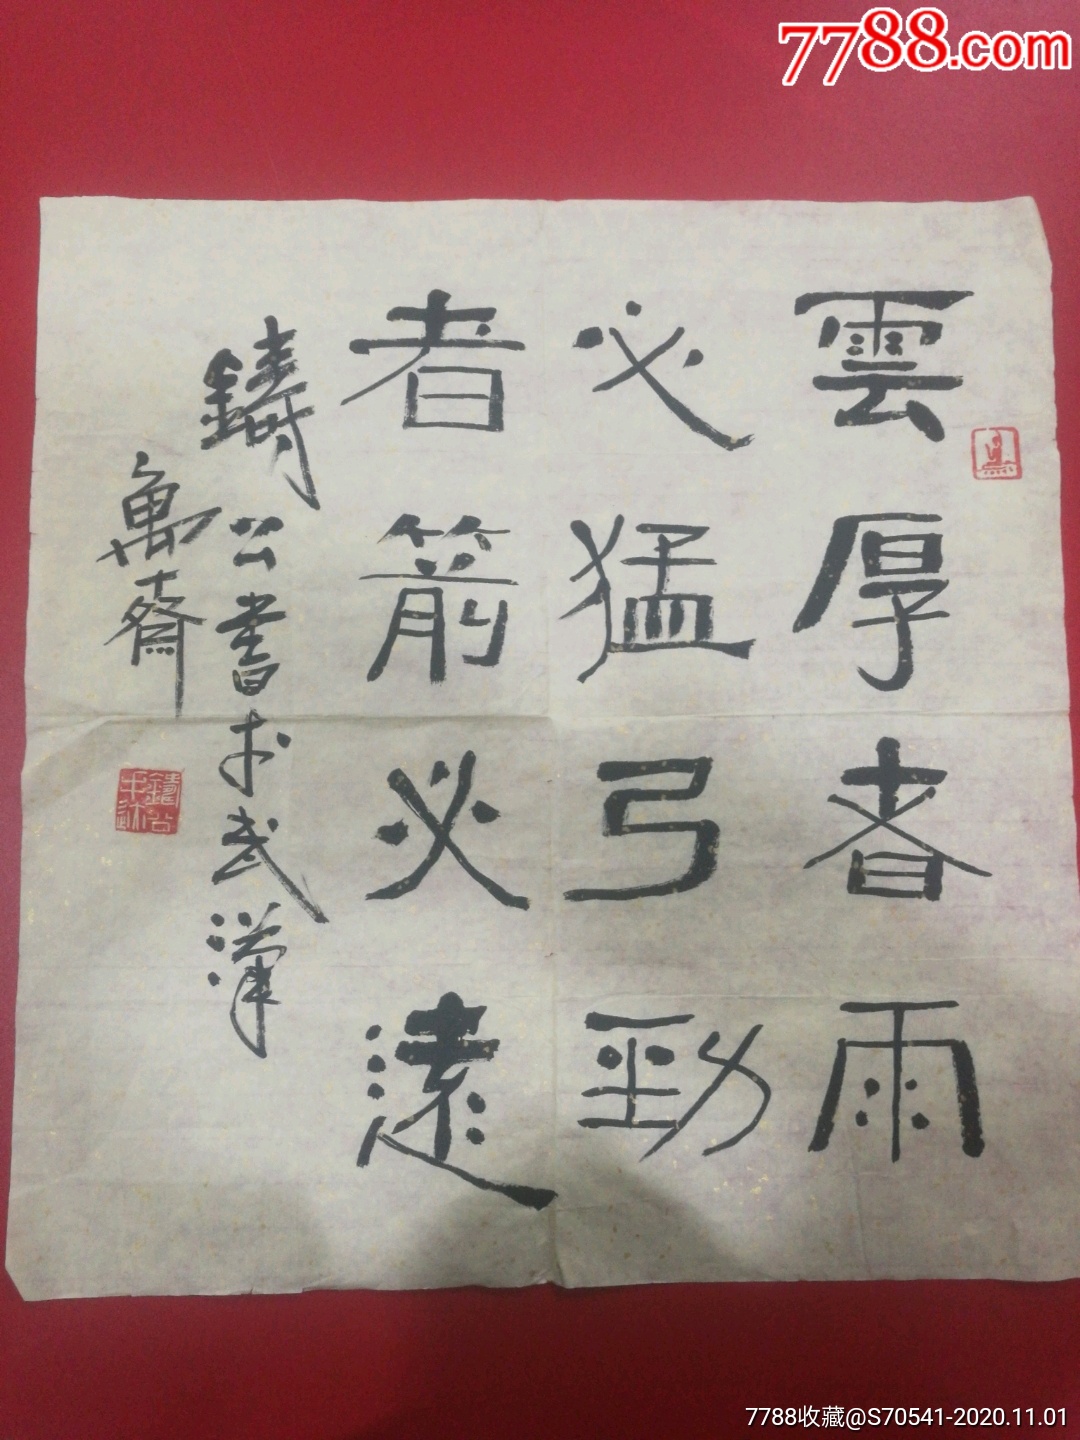 7788.com
雲厚者雨
必猛弓勁
者箭必遠
鑄公書於武漢
萬齋
7788收藏@S70541-2020.11.01